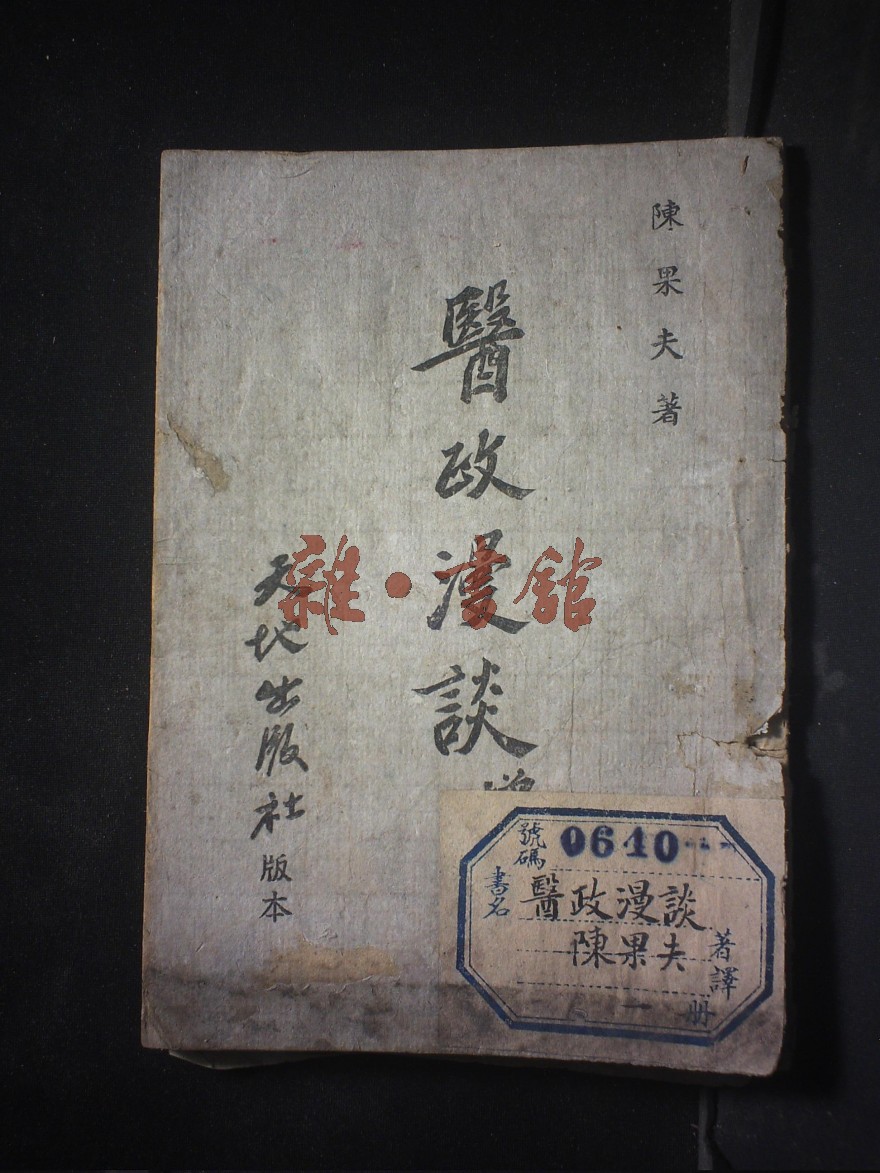 陳果夫著
醫政漫談
天地出版社版本
雜·書館
號碼 0640
書名 醫政漫談
陳果夫 著譯
一 册